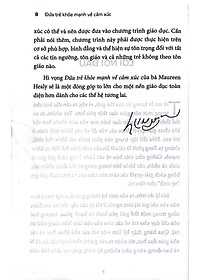 8 Đứa trẻ khỏe mạnh về cảm xúc
xúc có thể và nên được đưa vào chương trình giáo dục. Cần
phải nói thêm, chương trình này phải được thực hiện trên
cơ sở phù hợp, bình đẳng và thể hiện sự tôn trọng đối với tất
cả các tín ngưỡng, tôn giáo và cả những trẻ không theo tôn
giáo nào.
Hi vọng Đứa trẻ khỏe mạnh về cảm xúc của bà Maureen
Healy sẽ là một đóng góp to lớn cho một nền giáo dục toàn
diện hơn dành cho các thế hệ tương lai.